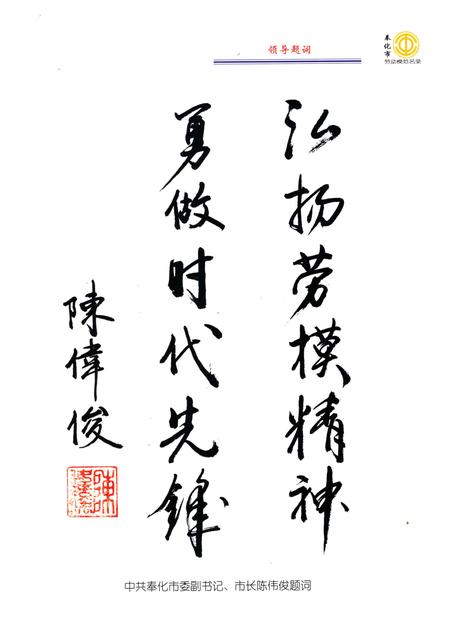 领导题词
奉化市
劳动模范名录
弘扬劳模精神
勇做时代先锋
陳偉俊
中共奉化市委副书记、市长陈伟俊题词